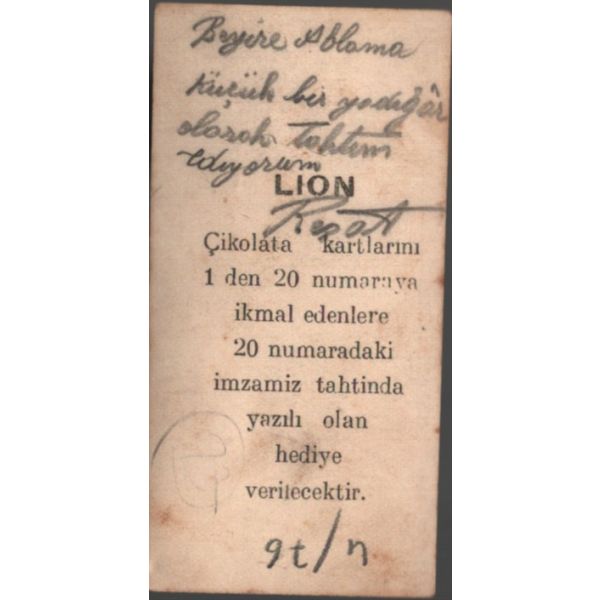 Beyire Ablama
küçük bir yadigâr
olarak tahtim
ediyorum
LION
Reşat
Çikolâta kartlarını
1 den 20 numaraya
ikmal edenlere
20 numaradaki
imzamiz tahtinda
yazılı olan
hediye
verilecektir.
9t/n